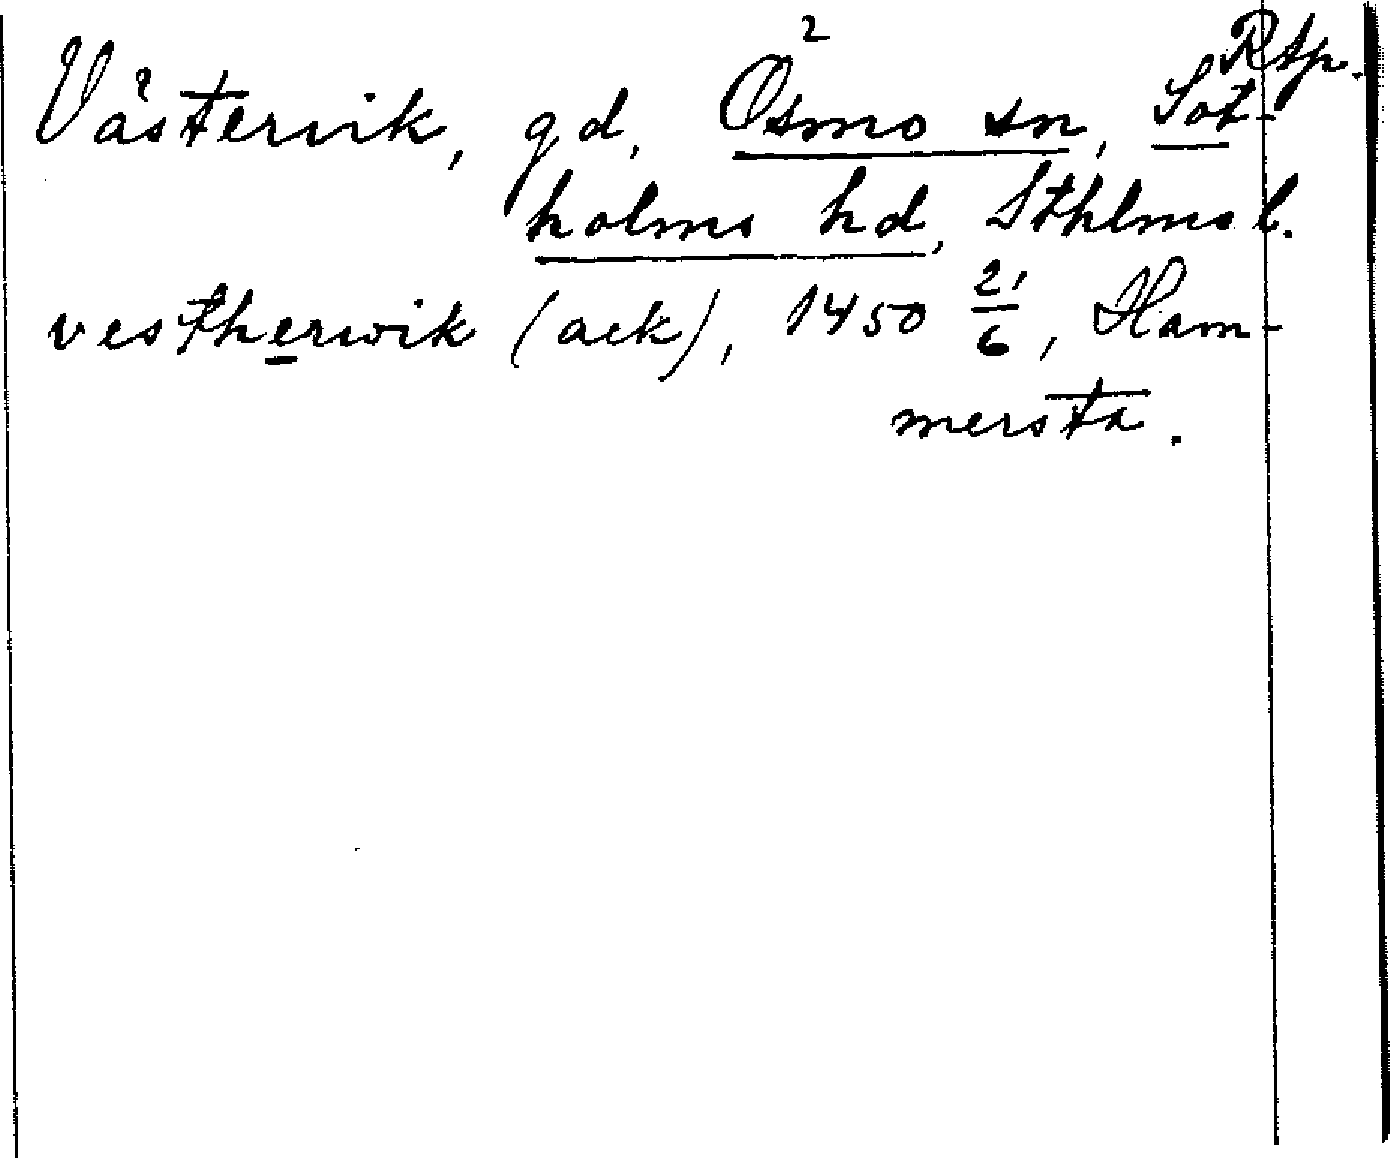 2 Rtp.
Västervik, gd, Ösmo sn, Sot-
holms hd, Sthlms l.
vestherwik (ack), 1450 21/6, Ham-
mersta.